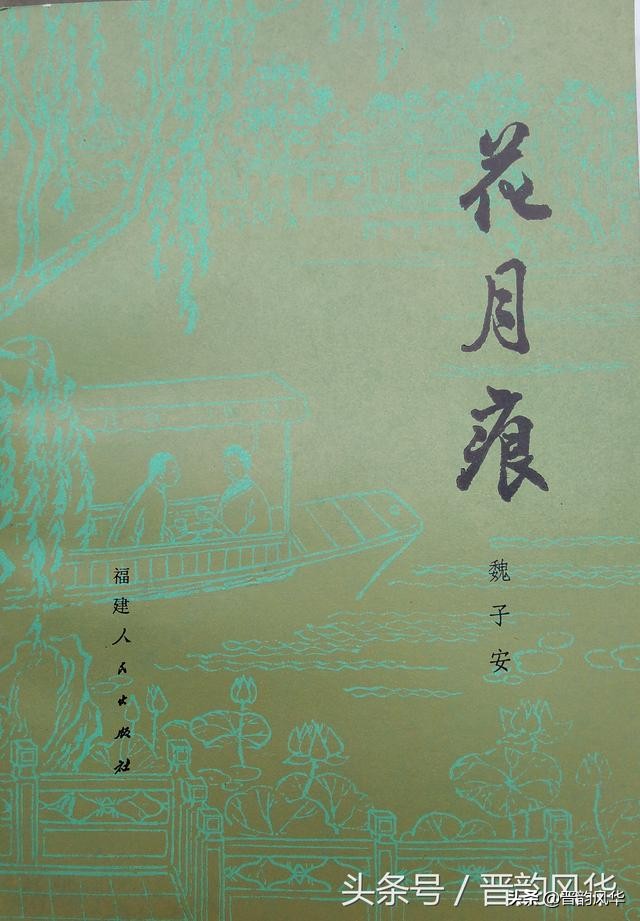 花月痕
魏子安
福建人民出版社
头条号／晋韵风华
头条@晋韵风华